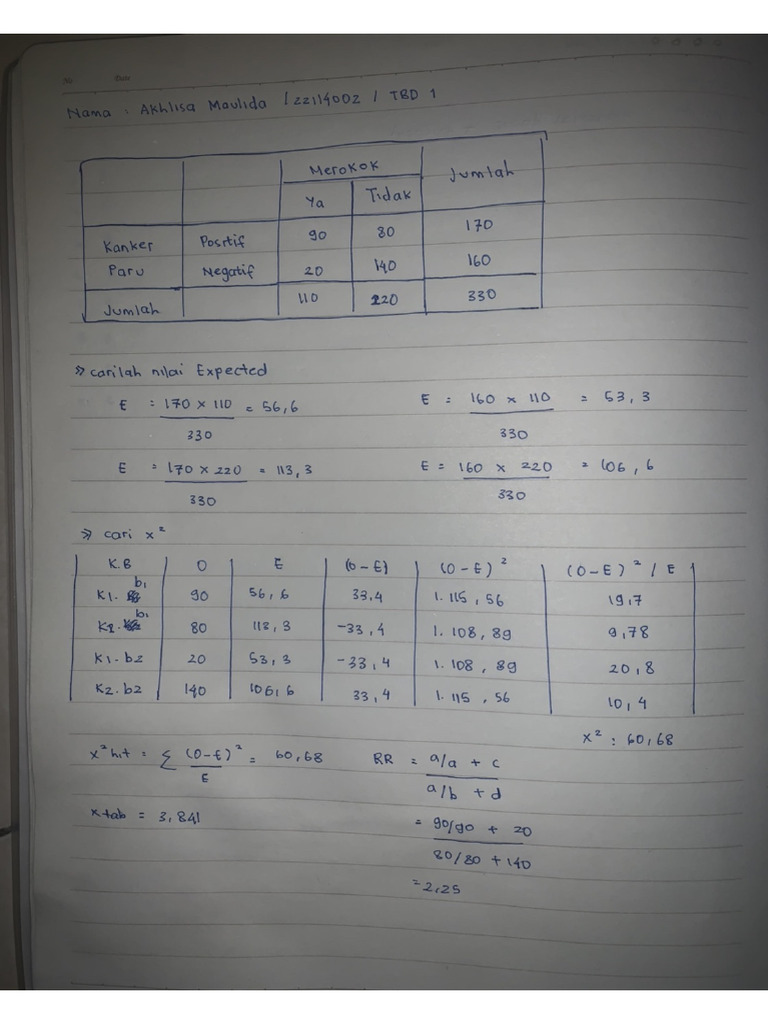 No. Date
Nama : Akhlisa Maulida / 22114002 / TBD 1
Merokok Jumlah
Ya Tidak
Kanker Positif 90 80 170
Paru Negatif 20 140 160
Jumlah 110 220 330
>> carilah nilai Expected
E = 170 x 110 = 56,6 E = 160 x 110 = 53,3
330 330
E = 170 x 220 = 113,3 E = 160 x 220 = 106,6
330 330
>> cari x²
K.B O E (O-E) (O-E)² (O-E)² / E
K1. b1 90 56,6 33,4 1.115,56 19,7
K2. b1 80 113,3 -33,4 1.108,89 9,78
K1.b2 20 53,3 -33,4 1.108,89 20,8
K2.b2 140 106,6 33,4 1.115,56 10,4
x² : 60,68
x² hit = Σ (O-E)² = 60,68 RR = a/a + c
E a/b + d
x tab = 3,841 = 90/90 + 20
80/80 + 140
= 2,25